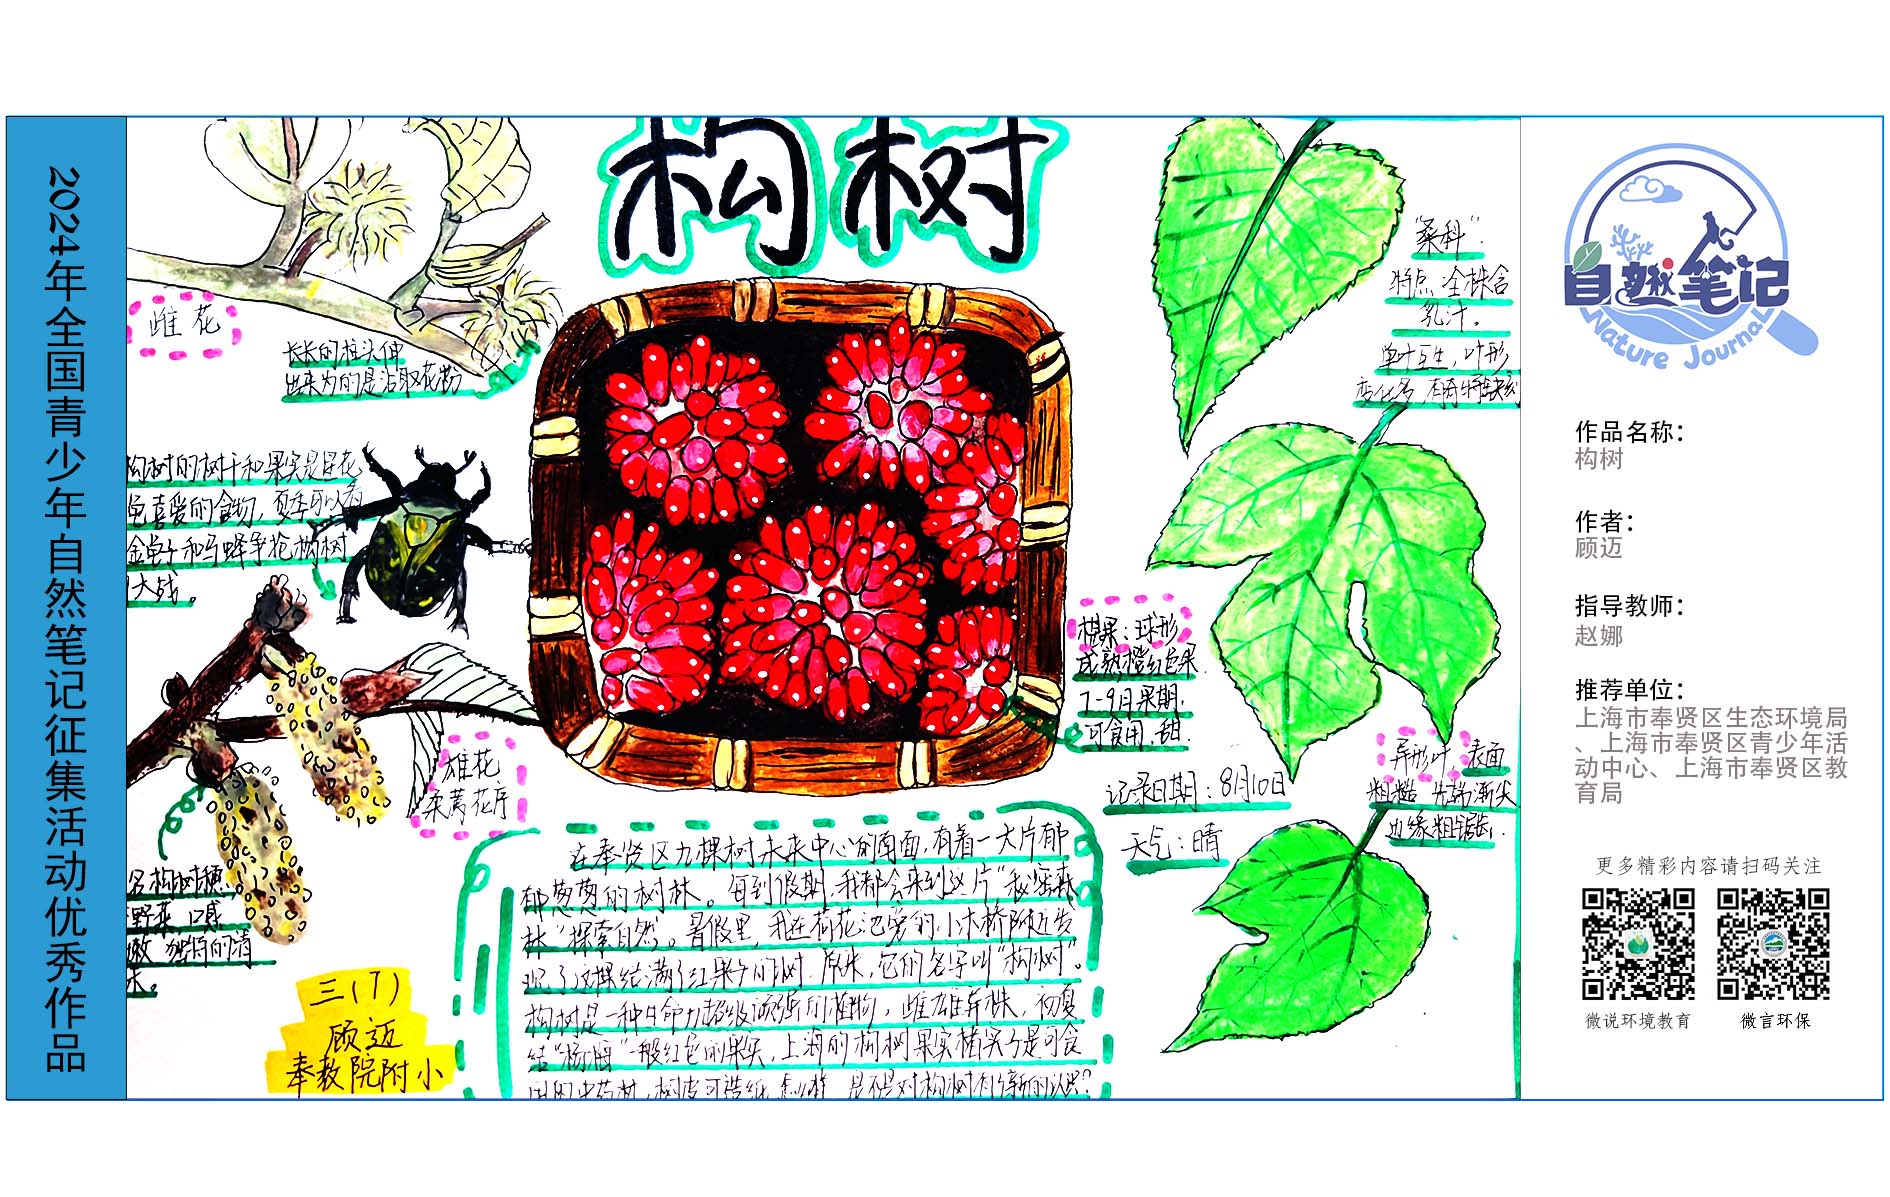 2024年全国青少年自然笔记征集活动优秀作品
构树
雌花
长长的柱头伸
出来为的是沾取花粉
构树的树干和果实是星花
龟喜爱的食物，夏季可以看
金龟子和马蜂争抢构树
大战。
雄花
柔荑花序
名构树穗
野菜，口感
嫩 独特的清
三(7)
顾迈
奉教院附小
球形
成熟橙红色果
7-9月果期.
可食用、甜.
记录日期：8月10日
天气：晴
在奉贤区九棵树未来中心的南面,有着一大片郁
郁葱葱的树林。每到假期,我都会来到这片“秘密森
林”探索自然。暑假里,我在荷花池旁的小木桥附近发
现了这棵结满了红果子的树.原来,它的名字叫“构树”。
构树是一种生命力超级顽强的植物，雌雄异株，初夏
结“杨梅”一般红色的果实,上海的构树果实楮实子是可食
用的中药材,树皮可造纸,怎么样 是不是对构树有了新的认识?
“桑科”:
特点:全株含
乳汁。
单叶互生，叶形
变化多,有奇特缺刻
异形叶,表面
粗糙 先端渐尖
边缘粗锯齿.
自然笔记
Nature Journal
作品名称：
构树
作者：
顾迈
指导教师：
赵娜
推荐单位：
上海市奉贤区生态环境局
、上海市奉贤区青少年活
动中心、上海市奉贤区教
育局
更多精彩内容请扫码关注
微说环境教育
微言环保